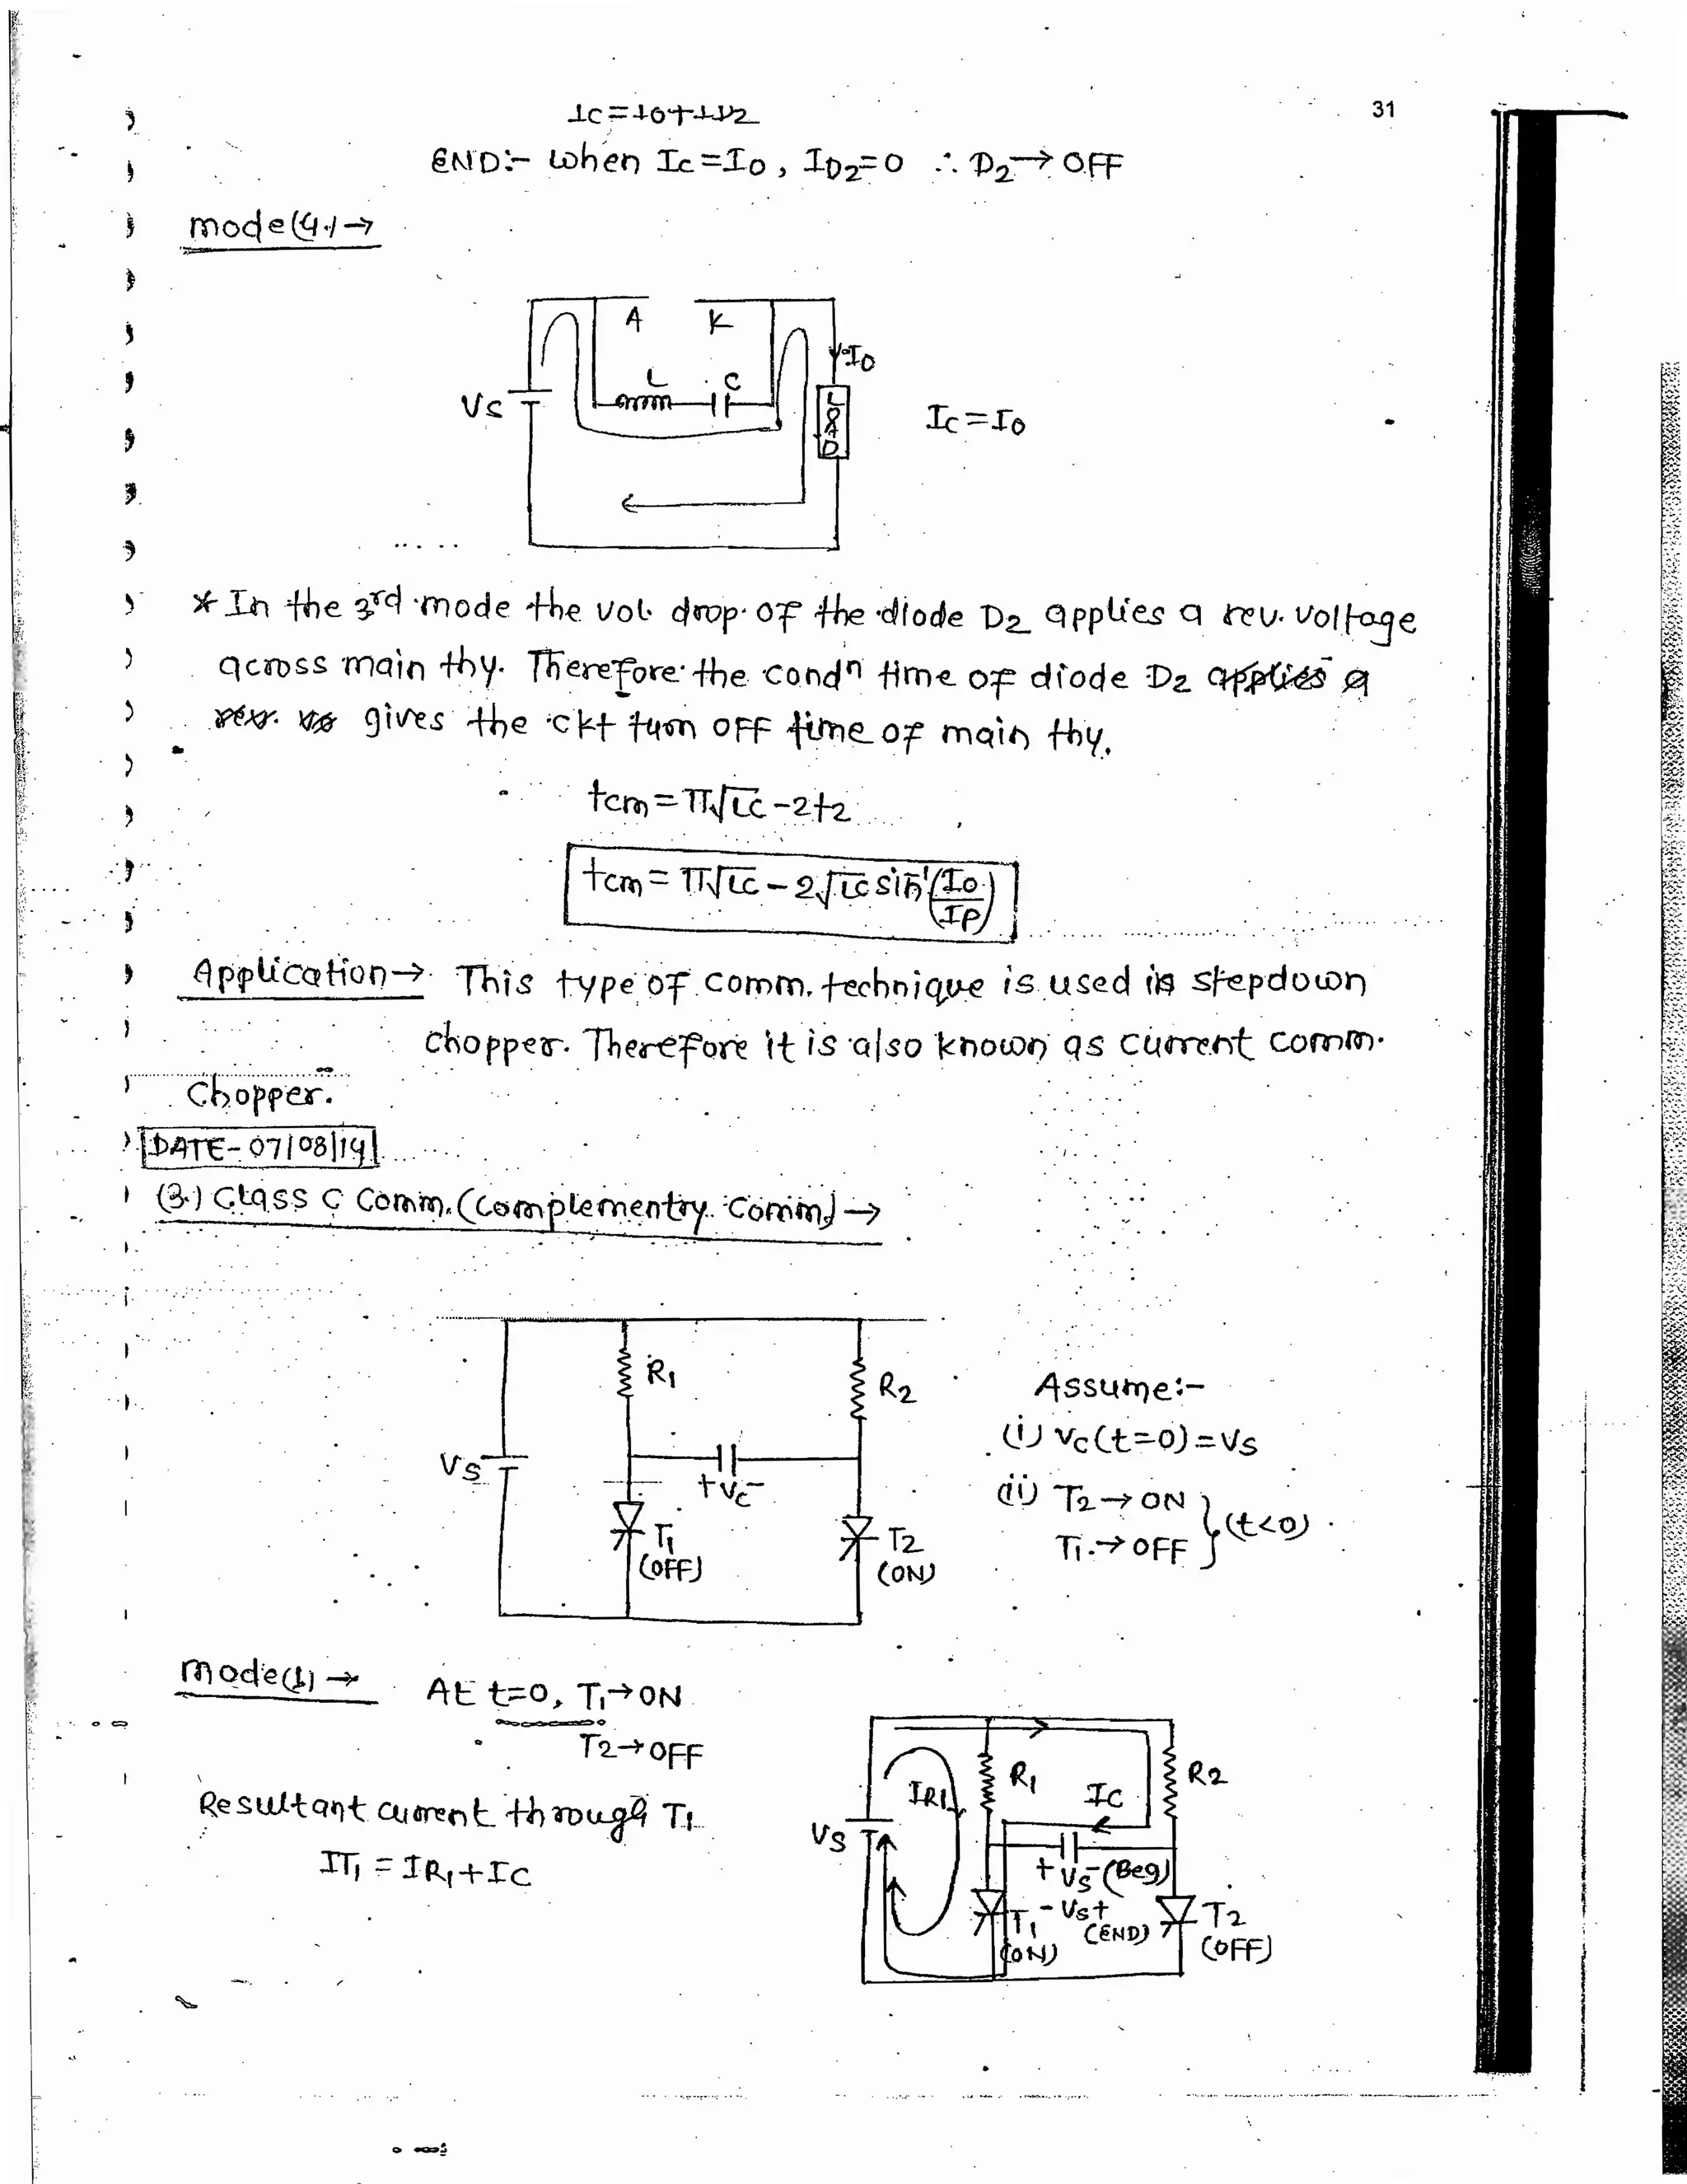 31
Ic = Io + ID2
END:- when Ic = Io, ID2 = 0 ∴ D2 → OFF
mode(4.) →
A K
Io
L C
Vs
LOAD
Ic = Io
* In the 3rd mode the vol. drop. of the diode D2 applies a rev. voltage
across main thy. Therefore the condn time of diode D2 applies a
rev. vo gives the ckt turn OFF time of main thy.
tcm = π√LC - 2t2
tcm = π√LC - 2√LC sin⁻¹(Io/Ip)
Application → This type of comm. technique is used in stepdown
chopper. Therefore it is also known as current comm.
Chopper.
DATE - 07/08/14
(3.) Class C Comm. (Complementry Comm) →
R1
R2
Vs
+ Vc -
T1
(OFF)
T2
(ON)
Assume:-
(i) Vc(t=0) = Vs
(ii) T2 → ON
T1 → OFF } (t<0)
mode(1) → At t=0, T1 → ON
T2 → OFF
Resultant current through T1
IT1 = IR1 + Ic
R1
R2
IR1
Ic
Vs
+ Vs - (Beg)
- Vs +
(END)
T1
(ON)
T2
(OFF)